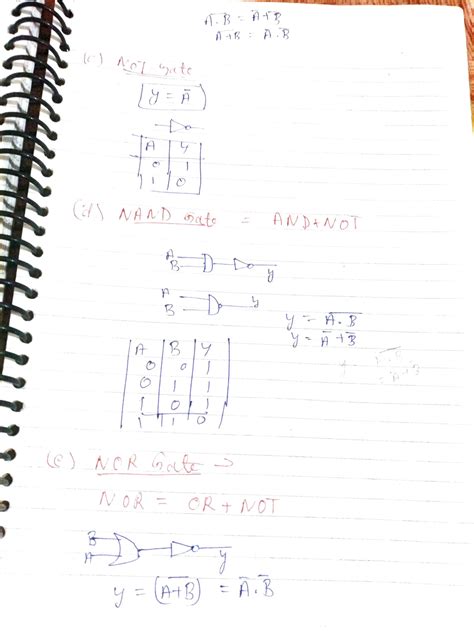 A.B = A̅+B̅
A+B = A̅.B̅
(c) NOT Gate
y = A̅
A Y
0 1
1 0
(d) NAND Gate = AND+NOT
A
B
y
A
B
y
y = \overline{A.B}
y = A̅+B̅
A B Y
0 0 1
0 1 1
1 0 1
1 1 0
(e) NOR Gate →
NOR = OR + NOT
B
A
y
y = (\overline{A+B}) = A̅.B̅